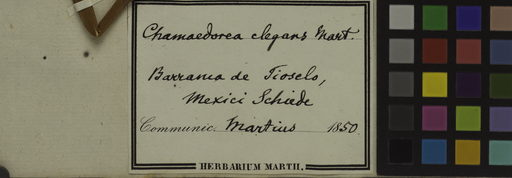 Chamaedorea elegans Mart.
Barranca de Tioselo,
Mexici Schiede
Communic. Martius 1850
HERBARIUM MARTII.